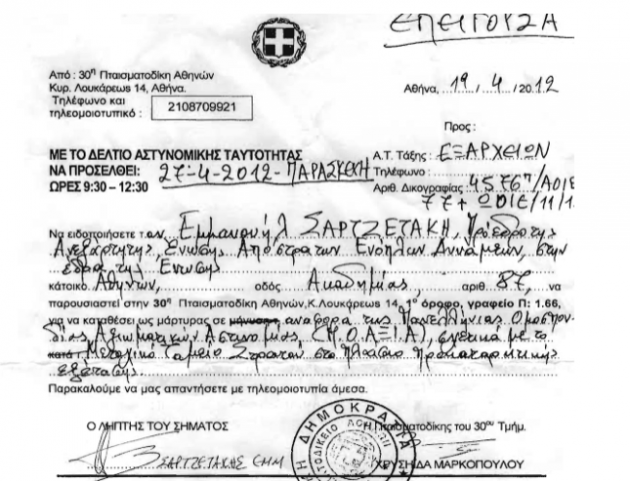 ΕΠΕΙΓΟΥΣΑ
Από : 30η Πταισματοδίκη Αθηνών
Κυρ. Λουκάρεως 14, Αθήνα.
Τηλέφωνο και
τηλεομοιοτυπικό :
2108709921
Αθήνα, 19 / 4 / 2012
Προς :
ΜΕ ΤΟ ΔΕΛΤΙΟ ΑΣΤΥΝΟΜΙΚΗΣ ΤΑΥΤΟΤΗΤΑΣ
ΝΑ ΠΡΟΣΕΛΘΕΙ: 27-4-2012-ΠΑΡΑΣΚΕΥΗ
ΩΡΕΣ 9:30 – 12:30
Α.Τ. Τάξης : ΕΞΑΡΧΕΙΩΝ
Τηλέφωνο :
Αριθ. Δικογραφίας :
Να ειδοποιήσετε τ.ον Εμμανουήλ ΣΑΡΤΖΕΤΑΚΗ, Πρόεδρο της
Ανεξάρτητης Ένωσης Αποστράτων Ενόπλων Δυνάμεων, στην
έδρα της Ένωσης
κάτοικο Αθηνών, οδός Ακαδημίας, αριθ. 87, να
παρουσιαστεί στην 30η Πταισματοδίκη Αθηνών,Κ.Λουκάρεως 14, 1ο όροφο, γραφείο Π: 1.66,
για να καταθέσει ως μάρτυρας σε αναφορά της Πανελλήνιας Ομοσπον
δίας Αξιωματικών Αστυνομίας (Π.Ο.ΑΞΙ.Α), σχετικά με το
κατά Μετοχικό Ταμείο Στρατού στο πλαίσιο προκαταρκτικής
εξέτασης.
Παρακαλούμε να μας απαντήσετε με τηλεομοιοτυπία άμεσα.
Ο ΛΗΠΤΗΣ ΤΟΥ ΣΗΜΑΤΟΣ
Η Πταισματοδίκης του 30ου Τμήμ.
ΣΑΡΤΖΕΤΑΚΗΣ ΕΜΜ
ΧΡΥΣΗΙΔΑ ΜΑΡΚΟΠΟΥΛΟΥ